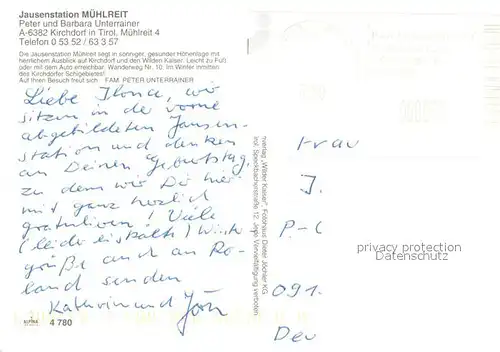 Jausenstation MÜHLREIT
Peter und Barbara Unterrainer
A-6382 Kirchdorf in Tirol, Mühlreit 4
Telefon 0 53 52 / 63 3 57
Die Jausenstation Mühlreit liegt in sonniger, gesunder Höhenlage mit
herrlichem Ausblick auf Kirchdorf und den Wilden Kaiser. Leicht zu Fuß
oder mit dem Auto erreichbar. Wanderweg Nr. 10. Im Winter inmitten
des Kirchdorfer Schigebietes!
Auf Ihren Besuch freut sich FAM. PETER UNTERRAINER
Liebe Ilona, wir
sitzen in der vorne
abgebildeten Jausen-
station und denken
an Deinen Geburtstag,
zu dem wir Dir hier
mit ganz herzlich
gratulieren! Viele
(leider eiskalte) Winter
grüße auch an Ro-
land senden
Kathrin und Jörn
4 780
"Wilder Kaiser", Fotohaus Dieter Jöchler KG
12. Jede Vervielfältigung verboten
Frau
I.
P.-C
091.
Deu
privacy protection
Datenschutz